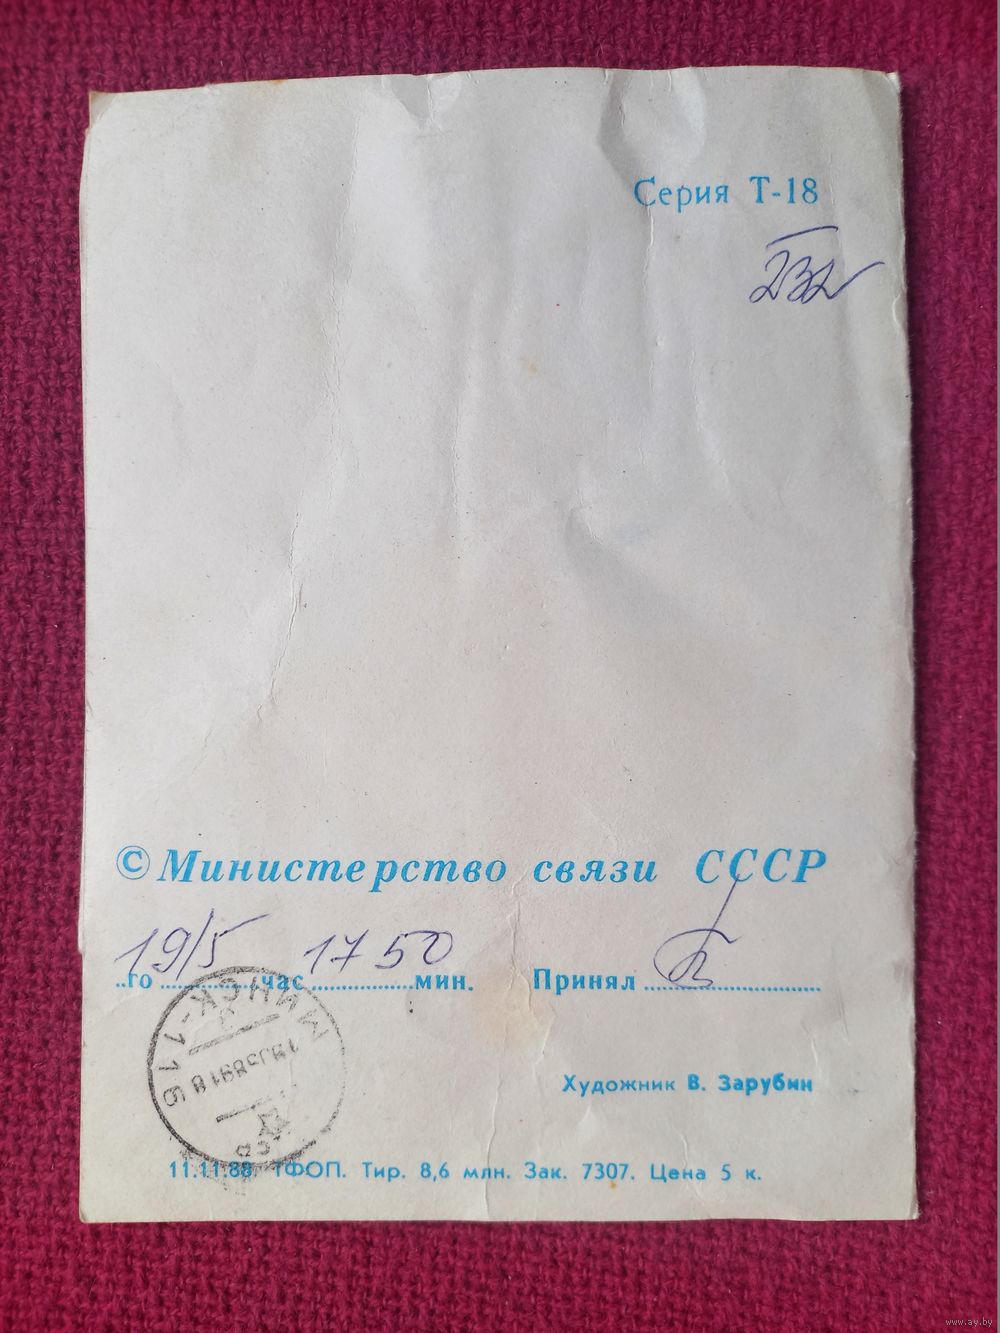 Серия Т-18
232
© Министерство связи СССР
19/5 17 50
..го ............час ................мин. Принял ............................
МИНСК-116
Художник В. Зарубин
11.11.88. ТФОП. Тир. 8,6 млн. Зак. 7307. Цена 5 к.
www.ay.by